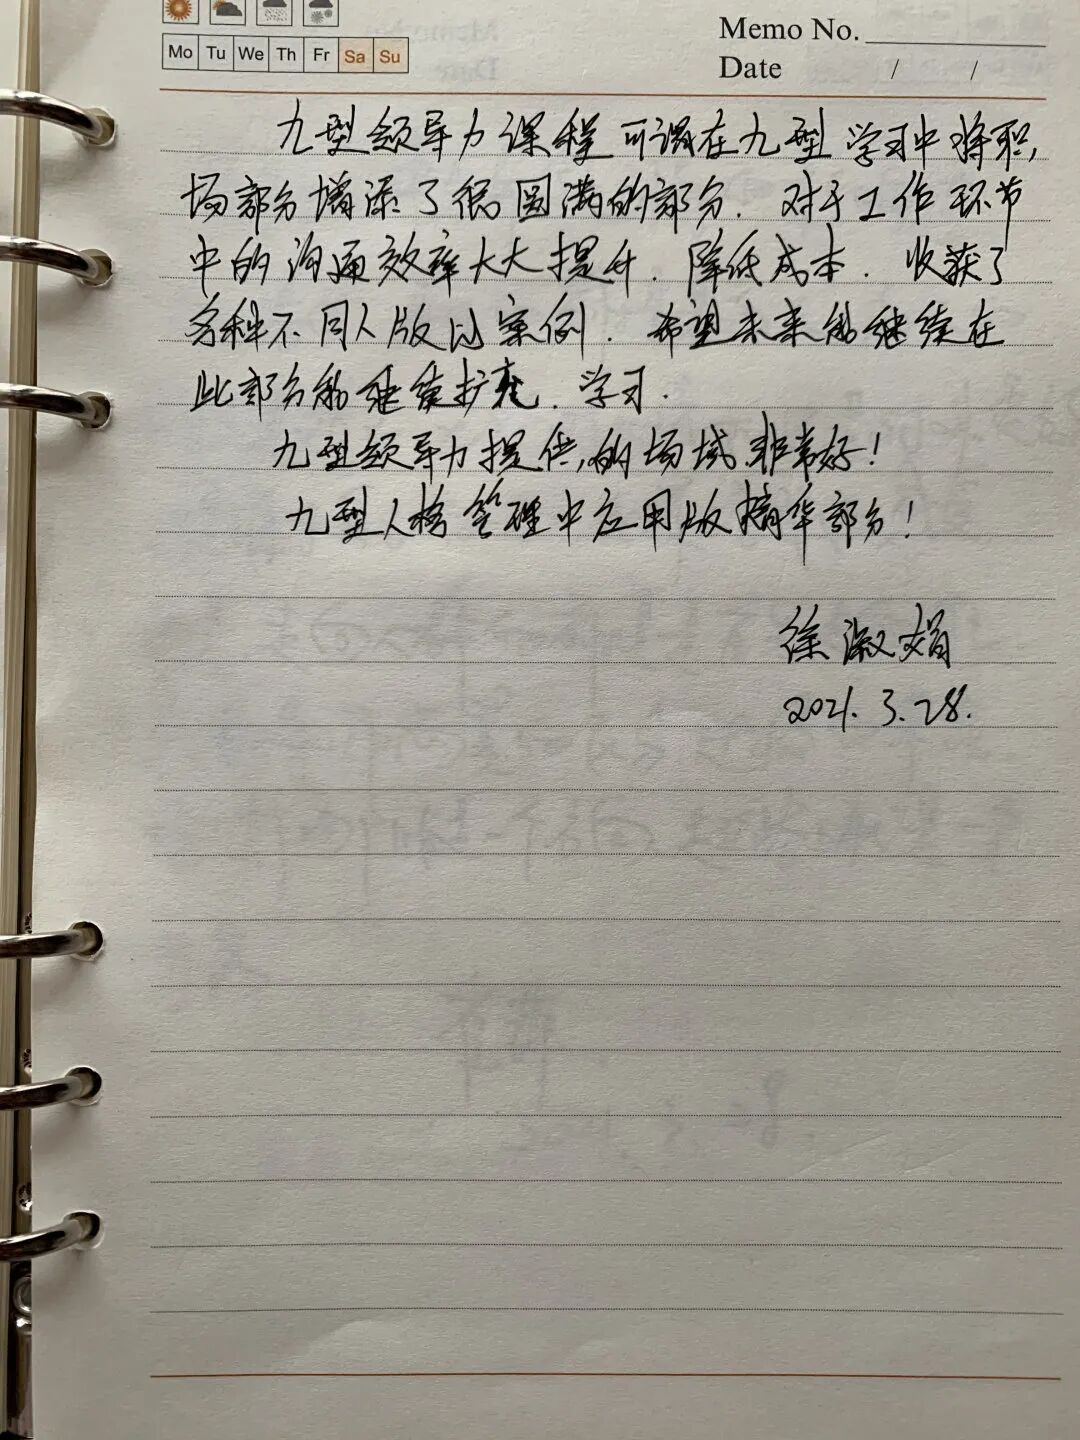 Mo Tu We Th Fr Sa Su
Memo No.
Date / /
九型领导力课程可谓在九型学习中将职,
场部分增添了很圆满的部分. 对于工作环节
中的沟通效率大大提升. 降低成本. 收获了
各种不同人版以案例. 希望未来能继续在
此部分能继续扩充. 学习.
九型领导力提供,的场域.非常好!
九型人格管理中应用版精华部分!
徐淑娟
2021. 3. 28.